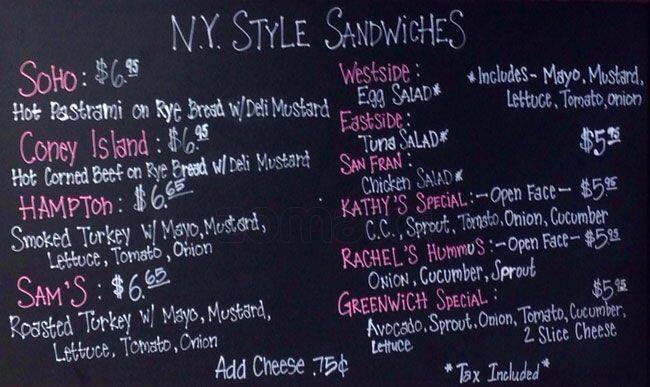 N.Y. STYLE SANDWICHES
SOHO: $6.95
Hot Pastrami on Rye Bread w/Deli Mustard
Coney Island: $6.95
Hot Corned Beef on Rye Bread w/Deli Mustard
HAMPTON: $6.65
Smoked Turkey w/ Mayo, Mustard,
Lettuce, Tomato, Onion
SAM'S: $6.65
Roasted Turkey w/ Mayo, Mustard,
Lettuce, Tomato, Onion
Westside:
Egg SALAD*
Eastside:
Tuna SALAD*
SAN FRAN:
Chicken SALAD*
*Includes- Mayo, Mustard,
Lettuce, Tomato, onion
$5.95
KATHY'S SPECIAL: -Open Face- $5.95
C.C., Sprout, Tomato, Onion, Cucumber
RACHEL'S HUMMUS: -Open Face- $5.95
ONION, Cucumber, Sprout
GREENWICH SPECIAL: $5.95
Avocado, Sprout, Onion, Tomato, Cucumber,
Lettuce 2 Slice Cheese
Add Cheese .75¢
*Tax Included*